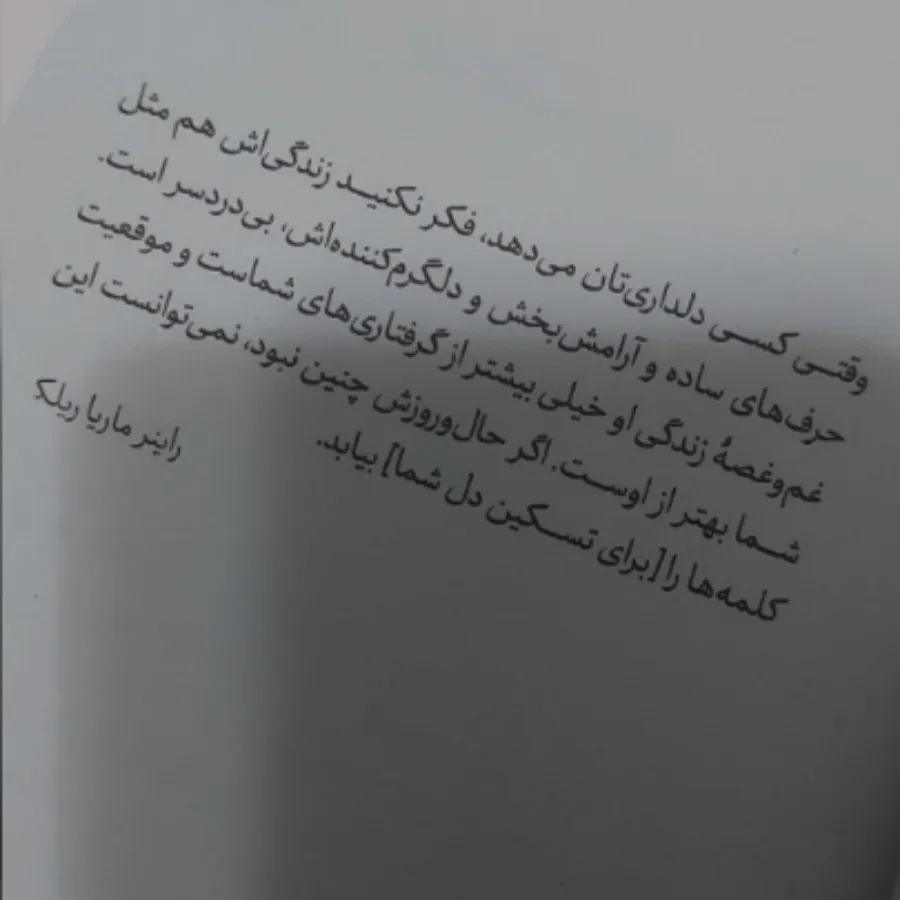 وقتی کسی دلداری‌تان می‌دهد، فکر نکنید زندگی‌اش هم مثل
حرف‌های ساده و آرامش‌بخش و دلگرم‌کننده‌اش، بی‌دردسر است.
غم‌وغصهٔ زندگی او خیلی بیشتر از گرفتاری‌های شماست و موقعیت
شما بهتر از اوست. اگر حال‌وروزش چنین نبود، نمی‌توانست این
کلمه‌ها را [برای تسکین دل شما] بیابد.
راینر ماریا ریلکه